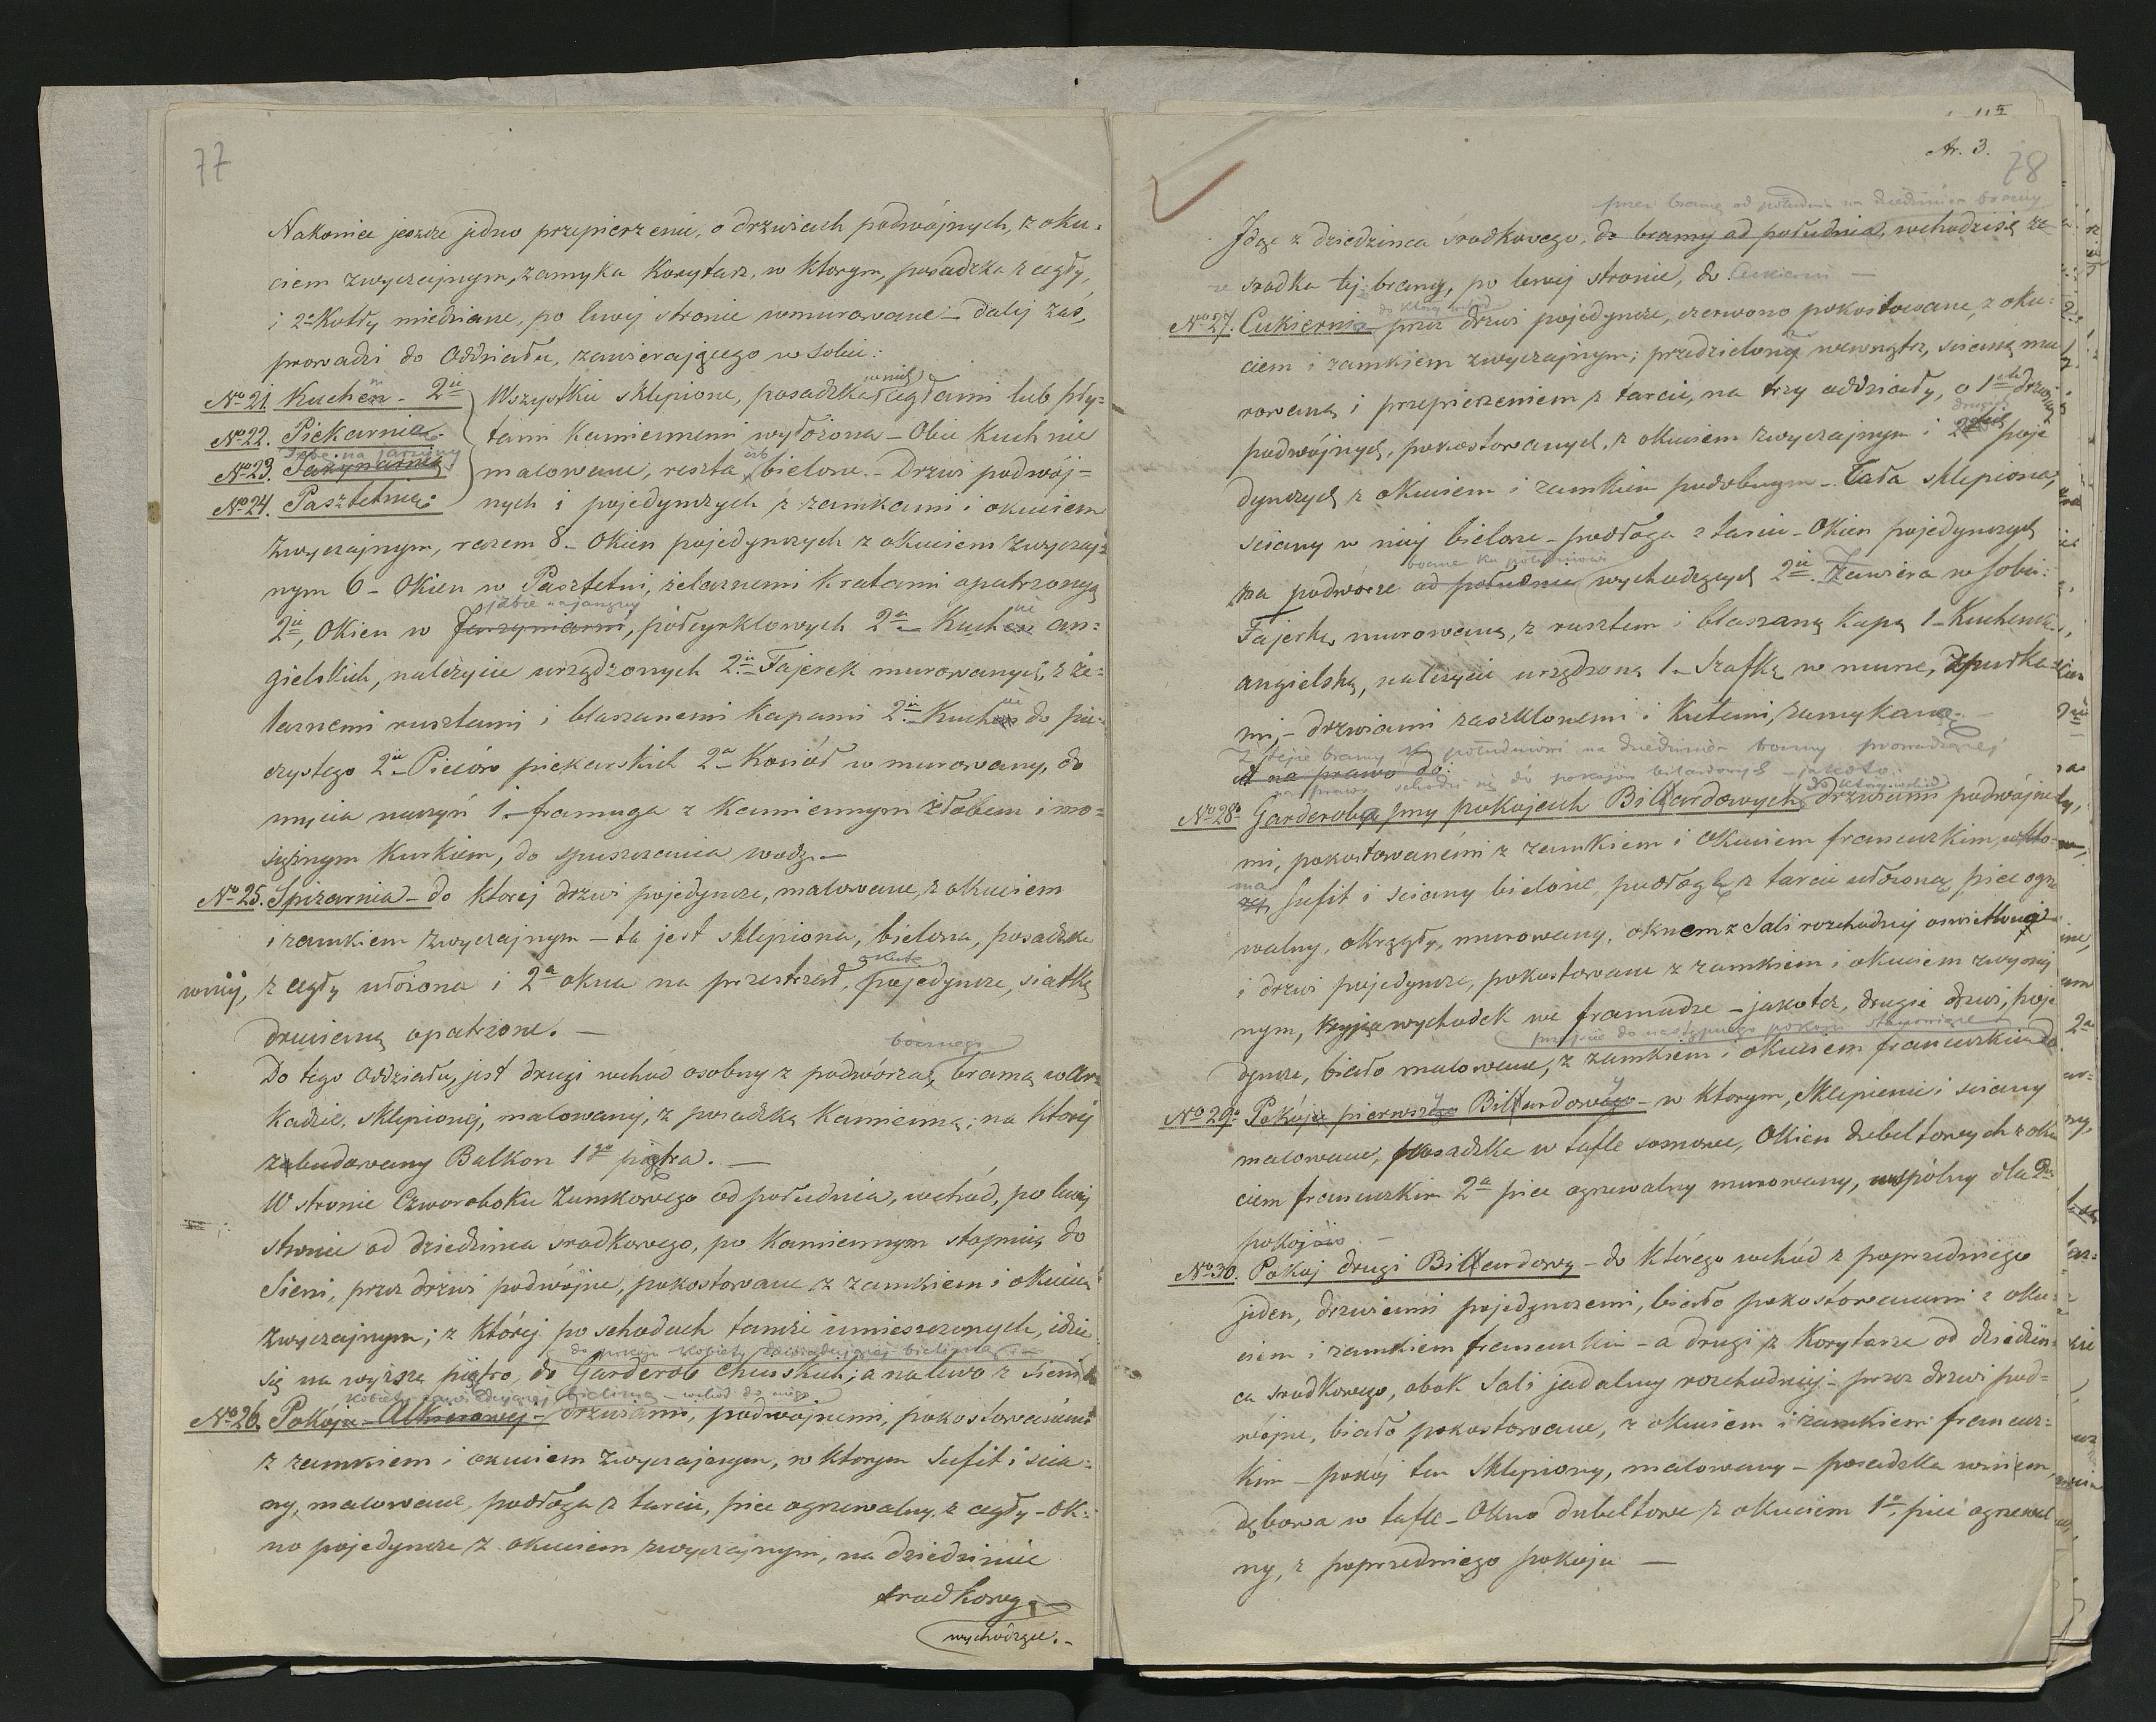 77
Nakoniec jeszcze jedno przepierzenie, o drzwiach podwójnych, z oku=
ciem zwyczajnym, zamyka Korytarz, w ktorym, posadzka z cegły,
i 2a Kotły miedziane, po lewej stronie wmurowane – dalej zaś,
prowadzi do Oddziału, zawierającego w sobie:
No 21. Kuchen – 2ie Wszystkie sklepione, posadzka w nich cegłami lub pły-
No 22. Piekarnia. tami Kamiennemi wyłożona – Obie Kuchnie
Izbe na jarzyny
No 23. Jarzynarnię malowane, reszta izb bielone – Drzwi podwój=
No 24. Pasztetnię: nych i pojedynczych z zamkami i okuciem
zwyczajnym, razem 8 – Okien pojedynczych z okuciem zwyczaj=
nym 6 – Okien w Pasztetni, żelaznemi Kratami opatrzonych
izbie na jarzyny
2ie, Okien w Jarzynarni, półcyrklowych 2a – Kuchen an=
gielskich, należycie urządzonych 2ie – Fajerek murowanych, z że=
laznemi rusztami i blaszanemi Kapami 2ie – Kuchen do pie=
czystego 2ie – Pieców piekarskich 2a – Kocioł w murowany, do
mycia naczyń 1 – framuga z Kamiennym żłobem i mo=
siężnym Kurkiem, do spuszczania wody. –
No 25. Spiżarnia – do ktorej drzwi pojedyncze, malowane, z okuciem
i zamkiem zwyczajnym – ta jest sklepiona, bielona, posadzka
w niej, z cegły ułożona i 2a okna na przestrzał, okute pojedyncze, siatką
drucianą opatrzone. –
bocznego
Do tego Oddziału, jest drugi wchod osobny z podwórza, bramą w Ar=
Kadzie, sklepionej, malowanej, z posadzką Kamienną; na ktorej
zabudowany Balkon 1go piętra. –
W stronie Czworoboku Zamkowego od południa, wchód, po lewej
stronie od dziedzińca srodkowego, po Kamiennym stopniu, do
Sieni, przez drzwi podwójne, pokostowane z zamkiem i okuciem
zwyczajnym; z której po schodach tamże umieszczonych, idzie
do pokoju Kobiety zawiadującej bielizną
się na wyższe piętro, do Garderob chińskich; a na lewo z sieni
Kobiety zawiadującej bielizną – wchód do niego
No 26. Pokoju Alkierowej – drzwiami, podwójnemi, pokostowanemi
z zamkiem i okuciem zwyczajnym, w ktorym Sufit i scia=
ny, malowane, podłoga z tarcic, piec ogrzewalny, z cegły – Ok=
no pojedyncze z okuciem zwyczajnym, na dziedziniec
srodkowy –
wychodzące. –
Ar. 3.
78
przez bramę od południa na dziedziniec boczny
Idąc z dziedzinca środkowego, do bramy od południa, wchodzi się ze
ze srodka tej bramy, po lewej stronie, do Cukierni –
do której wchód
No 27. Cukiernia przez drzwi pojedyncze, czerwono pokostowane, z oku=
ciem i zamkiem zwyczajnym; przedzieloną wewnątrz, scianą mu
rowaną i przepierzeniem z tarcic, na trzy oddziały, o drzwiach
drugich
podwójnych, pokostowanych, z okuciem zwyczajnym i poje
dynczych z okuciem i zamkiem podobnym – Cała sklepiona,
sciany w niej bielone – podłoga z tarcic – Okien pojedynczych
boczne ku południowi
na podwórze od południa wychodzących 2ie. Zawiera w sobie:
Fajerkę murowaną, z rusztem i blaszaną Kapą 1 – Kuchenkę
angielską, należycie urządzoną 1 – Szafkę w murze, z pułka
mi, – drzwiami zaszklonemi i Kutemi, zamykaną. –
Z tejże bramy południowej na dziedziniec boczny prowadzącej
na prawo do
na prawo wchodzi się do pokojów bilardowych – jakoto:
do której wchód
No 28. Garderoba przy pokojach Billardowych drzwiami podwójne
mi, pokostowanemi z zamkiem i Okuciem francuskim, w któ
ma
rej, Sufit i sciany bielone, podłogę z tarcic ułożoną, piec ogrze
walny, okrągły, murowany, oknem z Sali rozchodnej oswietlony
i drzwi pojedyncze, pokostowane z zamkiem i okuciem zwyczaj
nym, Kryjące wychodek we framudze – jakoteż, drugie drzwi, poje
przejście do następnego pokoju stanowiące
dyncze, biało malowane, z zamkiem i okuciem francuskim do
No 29. Pokój pierwszy Billardowy – w ktorym, Sklepienie i sciany
malowane, posadzka w tafle sosnowe, Okien dubeltowych z oku
ciem francuskim 2a piec ogrzewalny murowany, wspólny dla 2ch
pokojów. –
No 30. Pokoj drugi Billardowy – do którego wchód z poprzedniego
jeden, drzwiami pojedynczemi, biało pokostowanemi z oku=
ciem i zamkiem francuskim – a drugi z Korytarza od dziedziń=
ca srodkowego, obok Sali jadalnej rozchodniej – przez drzwi pod=
wójne, biało pokostowane, z okuciem i zamkiem francuz=
kim – pokój ten Sklepiony, malowany – posadzka w niem,
dębowa w tafle – Okno dubeltowe z okuciem 1o, piec ogrzewal
ny, z poprzedniego pokoju –